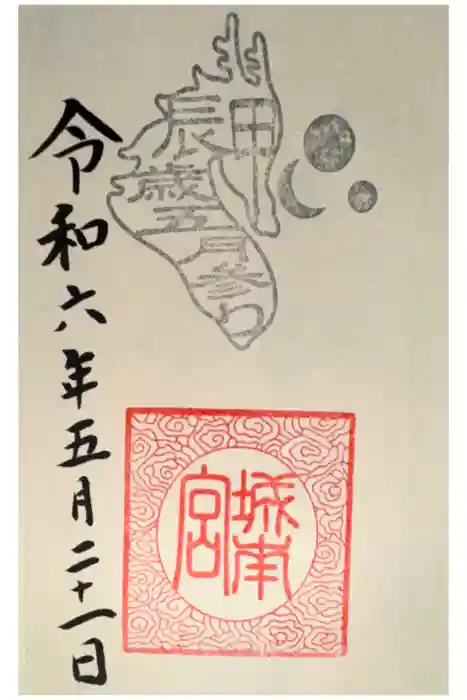 甲
辰
歳
五
月
参
り
城南
宮
令和六年五月二十一日